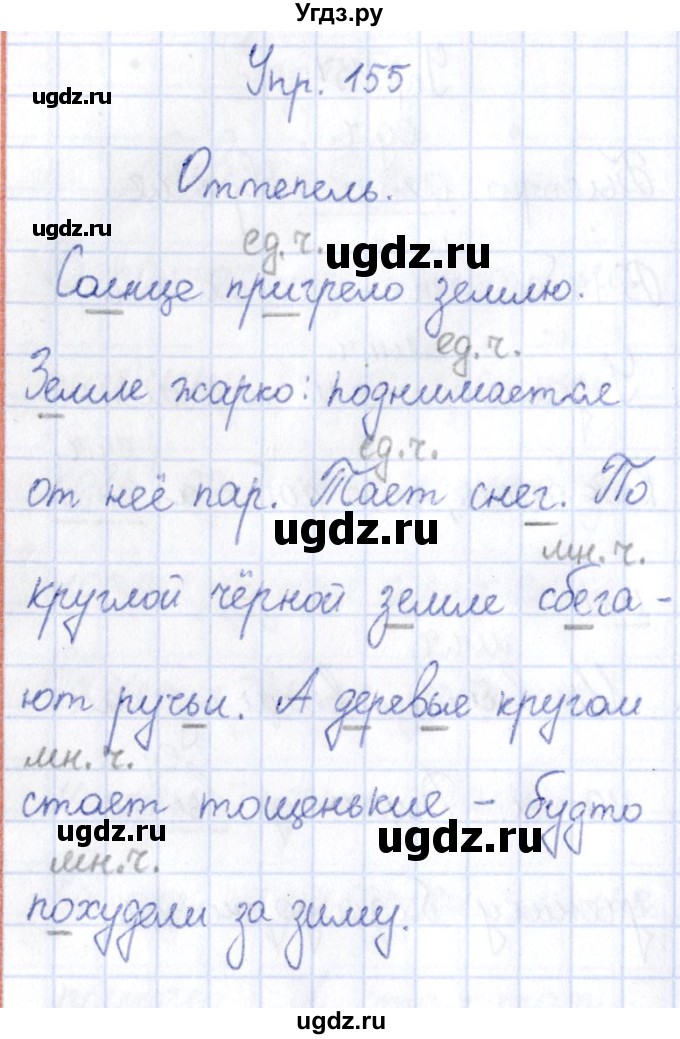 Угдз.ру
ugdz.ru
Упр. 155
Оттепель.
ugdz.ru
ед.ч.
ugdz.ru
Солнце пригрело землю.
ед.ч.
Земле жарко: поднимается
ед.ч.
от неё пар. Тает снег. По
ugdz.ru
мн.ч.
круглой чёрной земле сбега-
ют ручьи. А деревья кругом
мн.ч.
стоят тощенькие – будто
ugdz.ru
ugdz.ru
мн.ч.
похудели за зиму.
ugdz.ru